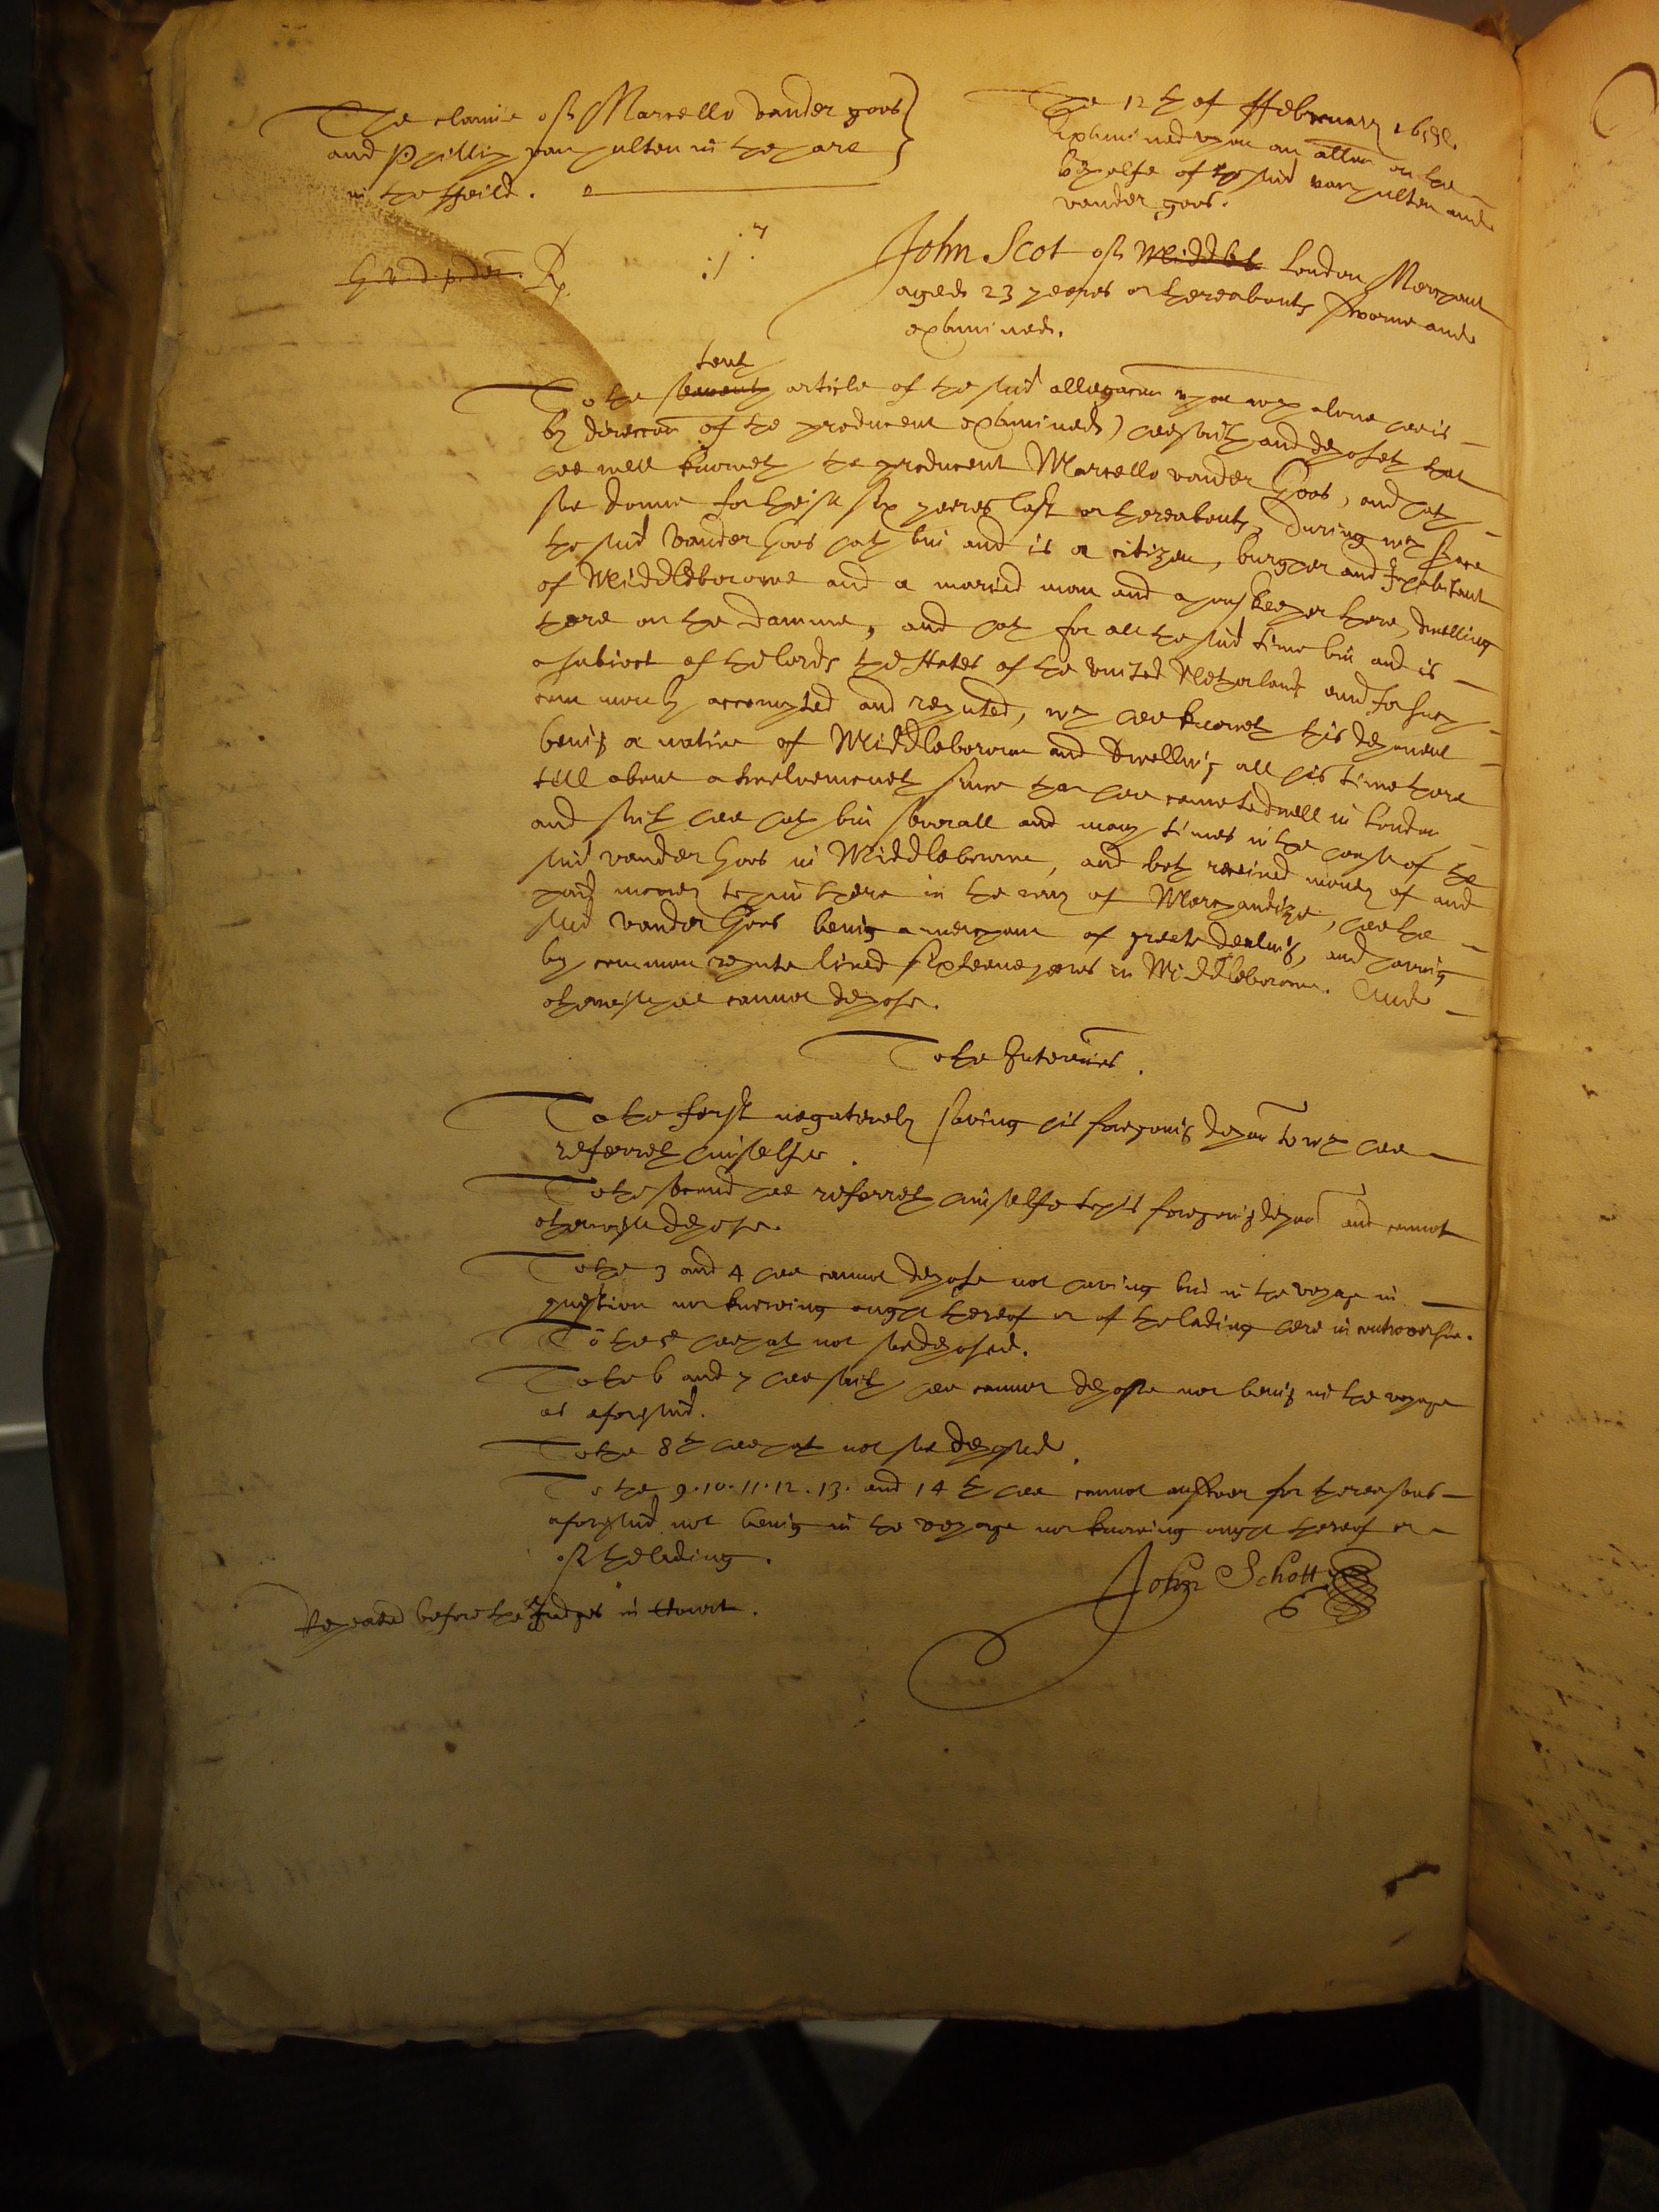 The claime of Marcello vander goos
and Phillip van hulten in the hare
in the ffeild.
The 12th of ffebruary 165
Examined upon an allon on the
behalfe of the said van hulten and
vander goos.
Rp.
John Scot of Middleb London Merchant
aged 23 yeeres or thereabouts sworne and
examined.
tenth
To the seaventh article of the said allegacon upon wch alone hee is
by direccon of the producent examined) hee saith and deposeth that
hee well knoweth the producent Marcello vander Goos, and hath
soe donne for theise six yeeres last or thereabouts, during wch space
the said Vander Goos hath bin and is a citizen, burgher and Inhabitant
of Middleborowe and a maried man and a houskeeper there, dwelling
there on the Damme, and hath for all the said time bin and is
a subiect of the lords the States of the United Netherlands and for such
comonly accompted and reputed, wch hee knoweth this deponent
being a native of Middleborowe and dwelling all his time there
till about a twelvemoneth since that hee came to dwell in London
and saith hee hath bin severall and many times in the house of the
said vander Goos in Middleborowe, and both received money of and
paid money to him there in the way of Merchandize, hee the
said vander Goos being a merchant of greate dealing, and having
by common repute lived sixteene yeeres in Middleborowe. And
otherwise hee cannot depose.
To the Interries.
To the first negatively saving his foregoing depon to wch hee
referreth himselfe.
To the second hee referreth himselfe to his foregoing depon and cannot
otherwise depose.
To the 3 and 4 hee cannot depose not having bin in the voyage in
question nor knowing ought thereof or of the lading here in controversie.
To the 5 hee hath not soe deposed.
To the 6 and 7 hee saith hee cannot depose not being in the voyage
as aforesaid.
To the 8th hee hath not soe deposed.
To the 9. 10. 11. 12. 13. and 14th hee cannot answer for the reasons
aforesaid not being in the voyage nor knowing ought thereof or
of the lading.
John Schott
Repeated before the Judges in Court.